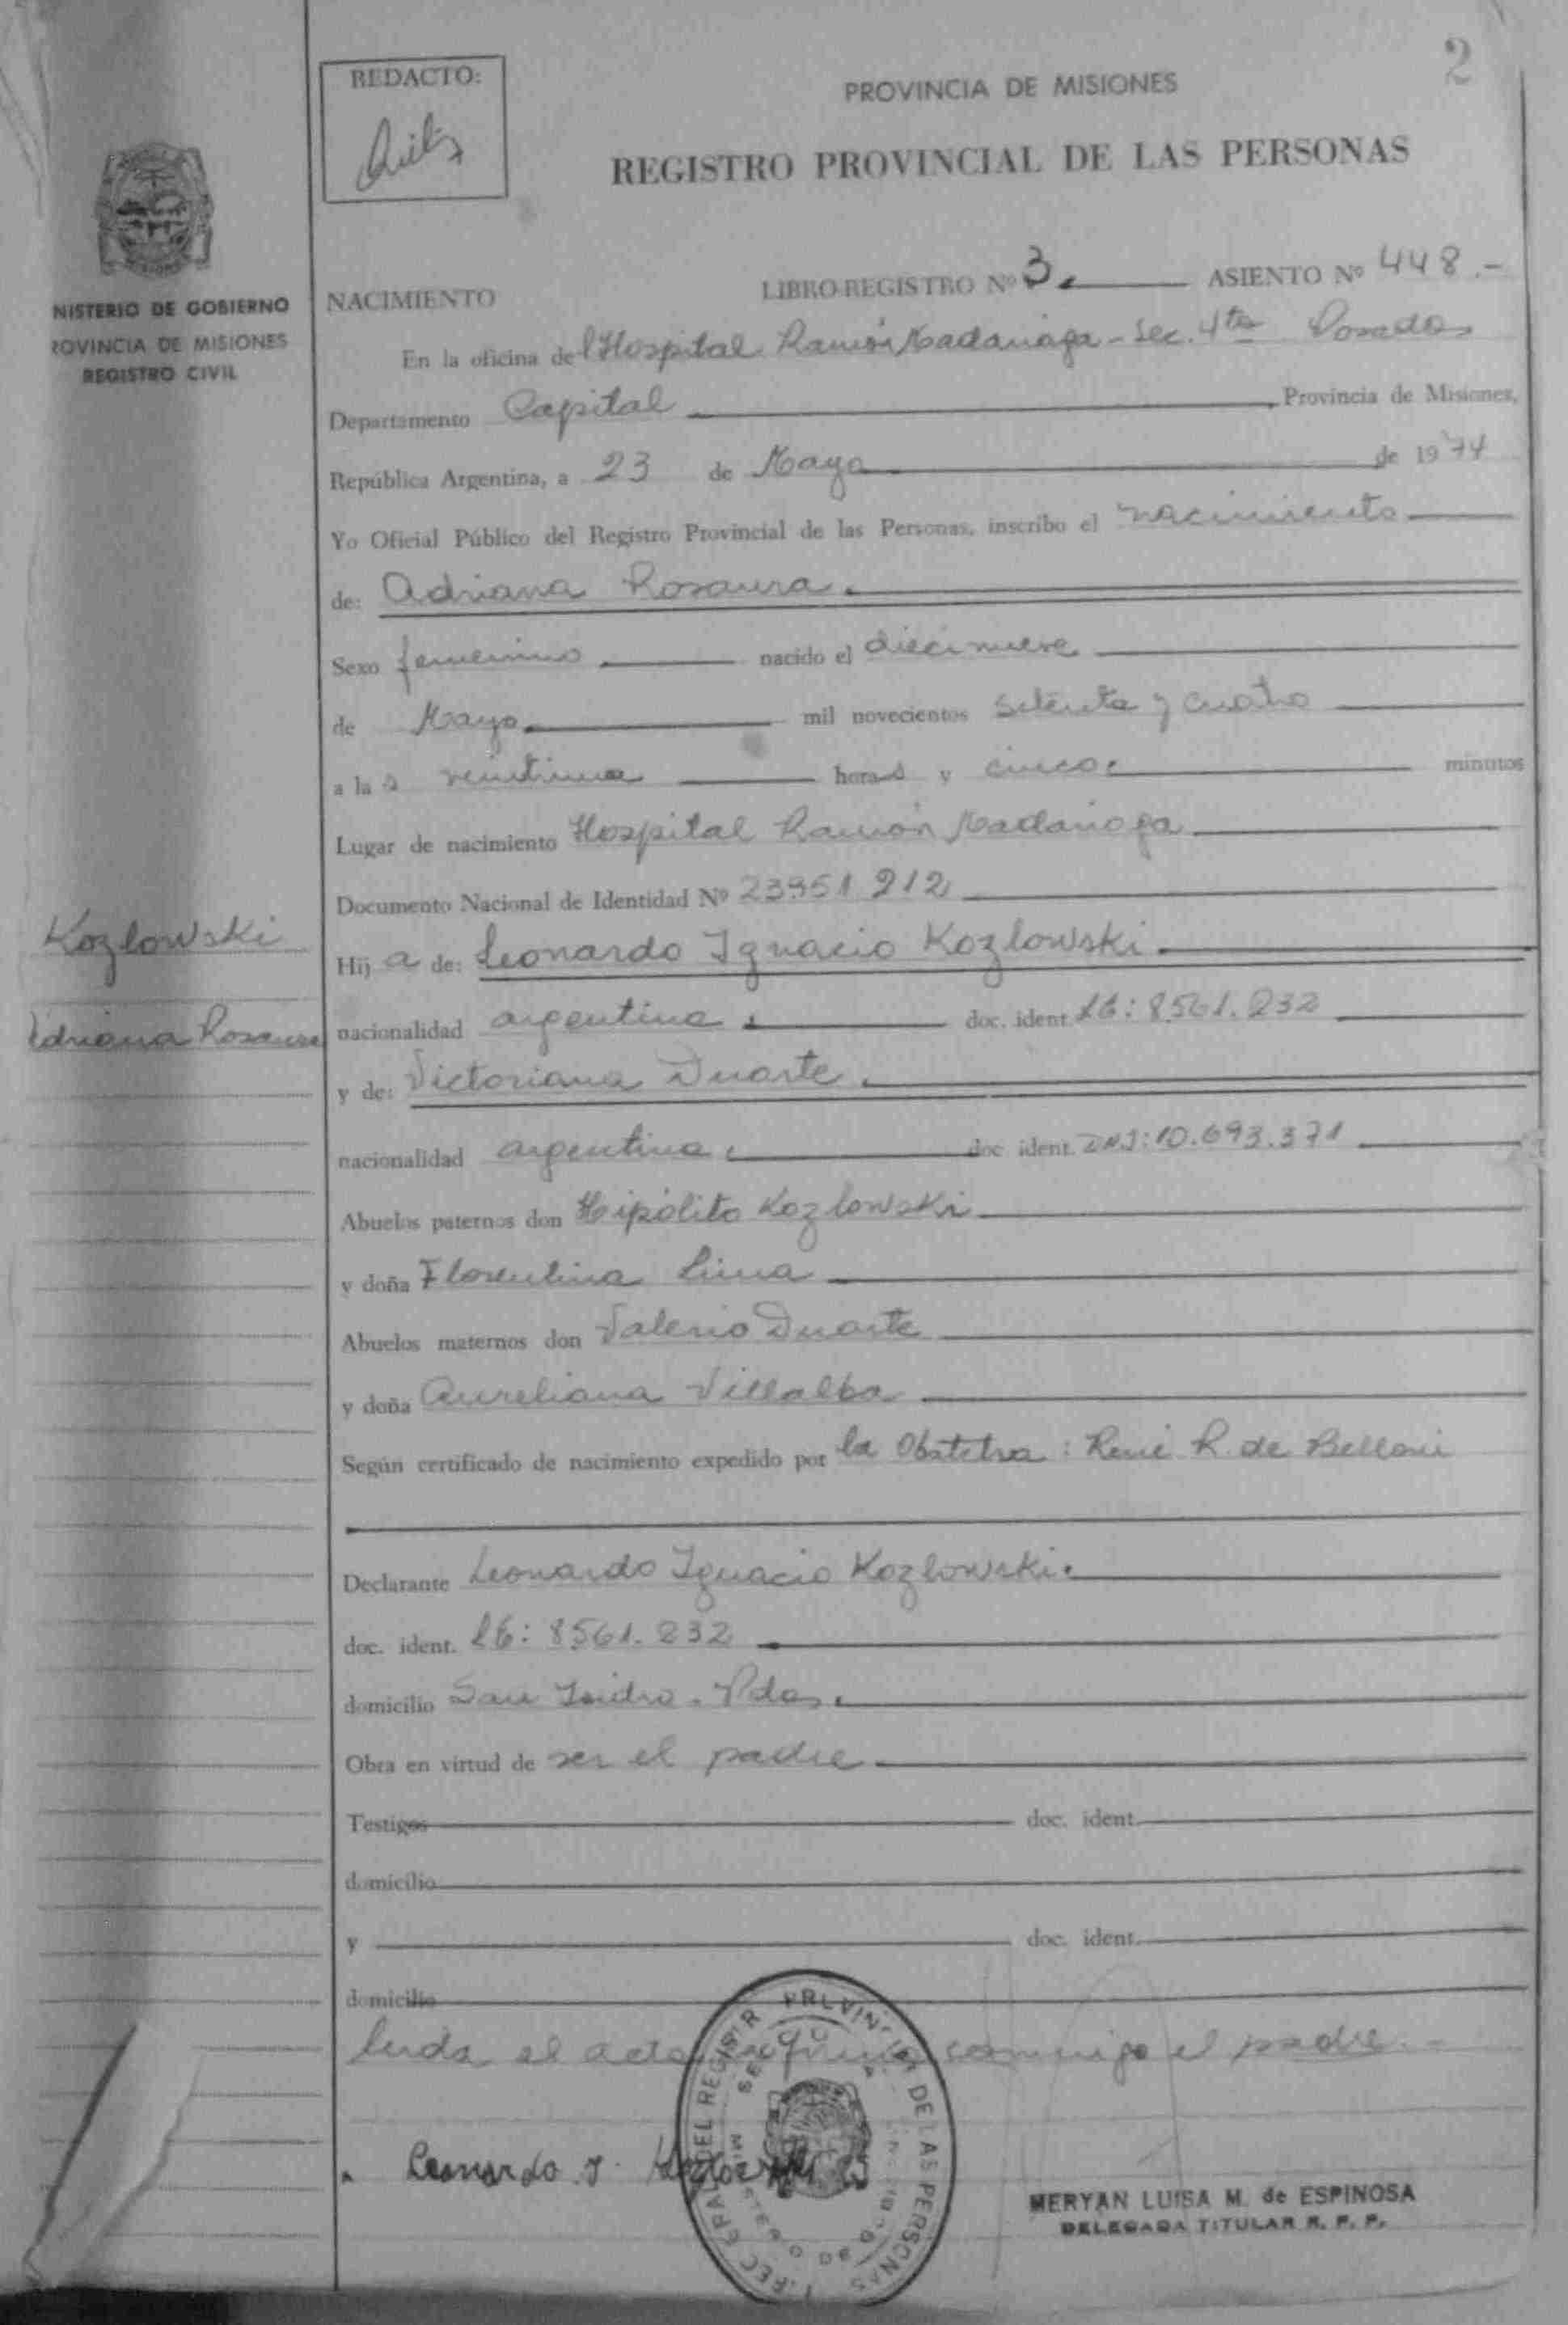 2
REDACTO:
PROVINCIA DE MISIONES
REGISTRO PROVINCIAL DE LAS PERSONAS
NISTERIO DE GOBIERNO
ROVINCIA DE MISIONES
REGISTRO CIVIL
NACIMIENTO
LIBRO-REGISTRO Nº 3. ASIENTO Nº 448.-
En la oficina del Hospital Ramón Madariaga - Sec. 4ta Posadas
Departamento Capital Provincia de Misiones,
República Argentina, a 23 de Mayo de 1974
Yo Oficial Público del Registro Provincial de las Personas, inscribo el nacimiento
de: Adriana Rosaura.
Sexo femenino nacido el diecinueve
de Mayo. mil novecientos setenta y cuatro
a las veintiuna horas y cinco. minutos
Lugar de nacimiento Hospital Ramón Madariaga
Documento Nacional de Identidad Nº 23.951.212
Kozlowski
Adriana Rosaura
Hija de: Leonardo Ignacio Kozlowski.
nacionalidad argentina. doc. ident. LE: 8.561.232
y de: Victoriana Duarte.
nacionalidad argentina. doc ident. DNI: 10.693.371
Abuelos paternos don Hipólito Kozlowski
y doña Florentina Lima
Abuelos maternos don Valerio Duarte
y doña Aureliana Villalba
Según certificado de nacimiento expedido por la Obstetra: René R. de Belloni
Declarante Leonardo Ignacio Kozlowski.
doc. ident. LE: 8561.232
domicilio San Isidro - Pdas.
Obra en virtud de ser el padre
Testigos doc. ident.
domicilio
y doc. ident.
domicilio
leida el acta firma conmigo el padre.-
Leonardo I. Kozlowski
DEL REGISTR PROVINCIAL DE LAS PERSONAS
MERYAN LUISA M. de ESPINOSA
DELEGADA TITULAR R. P. P.